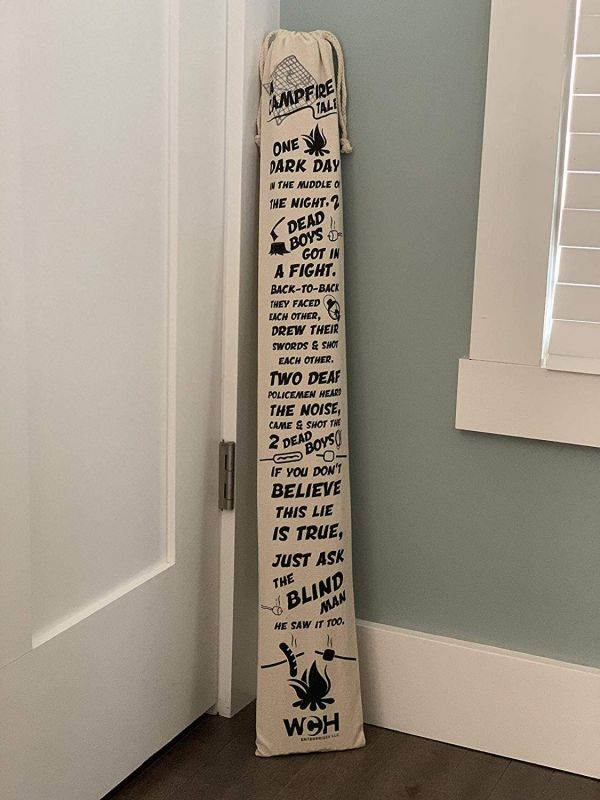 CAMPFIRE
TALE
ONE
DARK DAY
IN THE MIDDLE O
THE NIGHT. 2
DEAD
BOYS
GOT IN
A FIGHT.
BACK-TO-BACK
THEY FACED
EACH OTHER,
DREW THEIR
SWORDS & SHOT
EACH OTHER.
TWO DEAF
POLICEMEN HEARD
THE NOISE,
CAME & SHOT THE
2 DEAD BOYS
IF YOU DON'T
BELIEVE
THIS LIE
IS TRUE,
JUST ASK
THE
BLIND
MAN
HE SAW IT TOO.
WCH
ENTERPRISES LLC